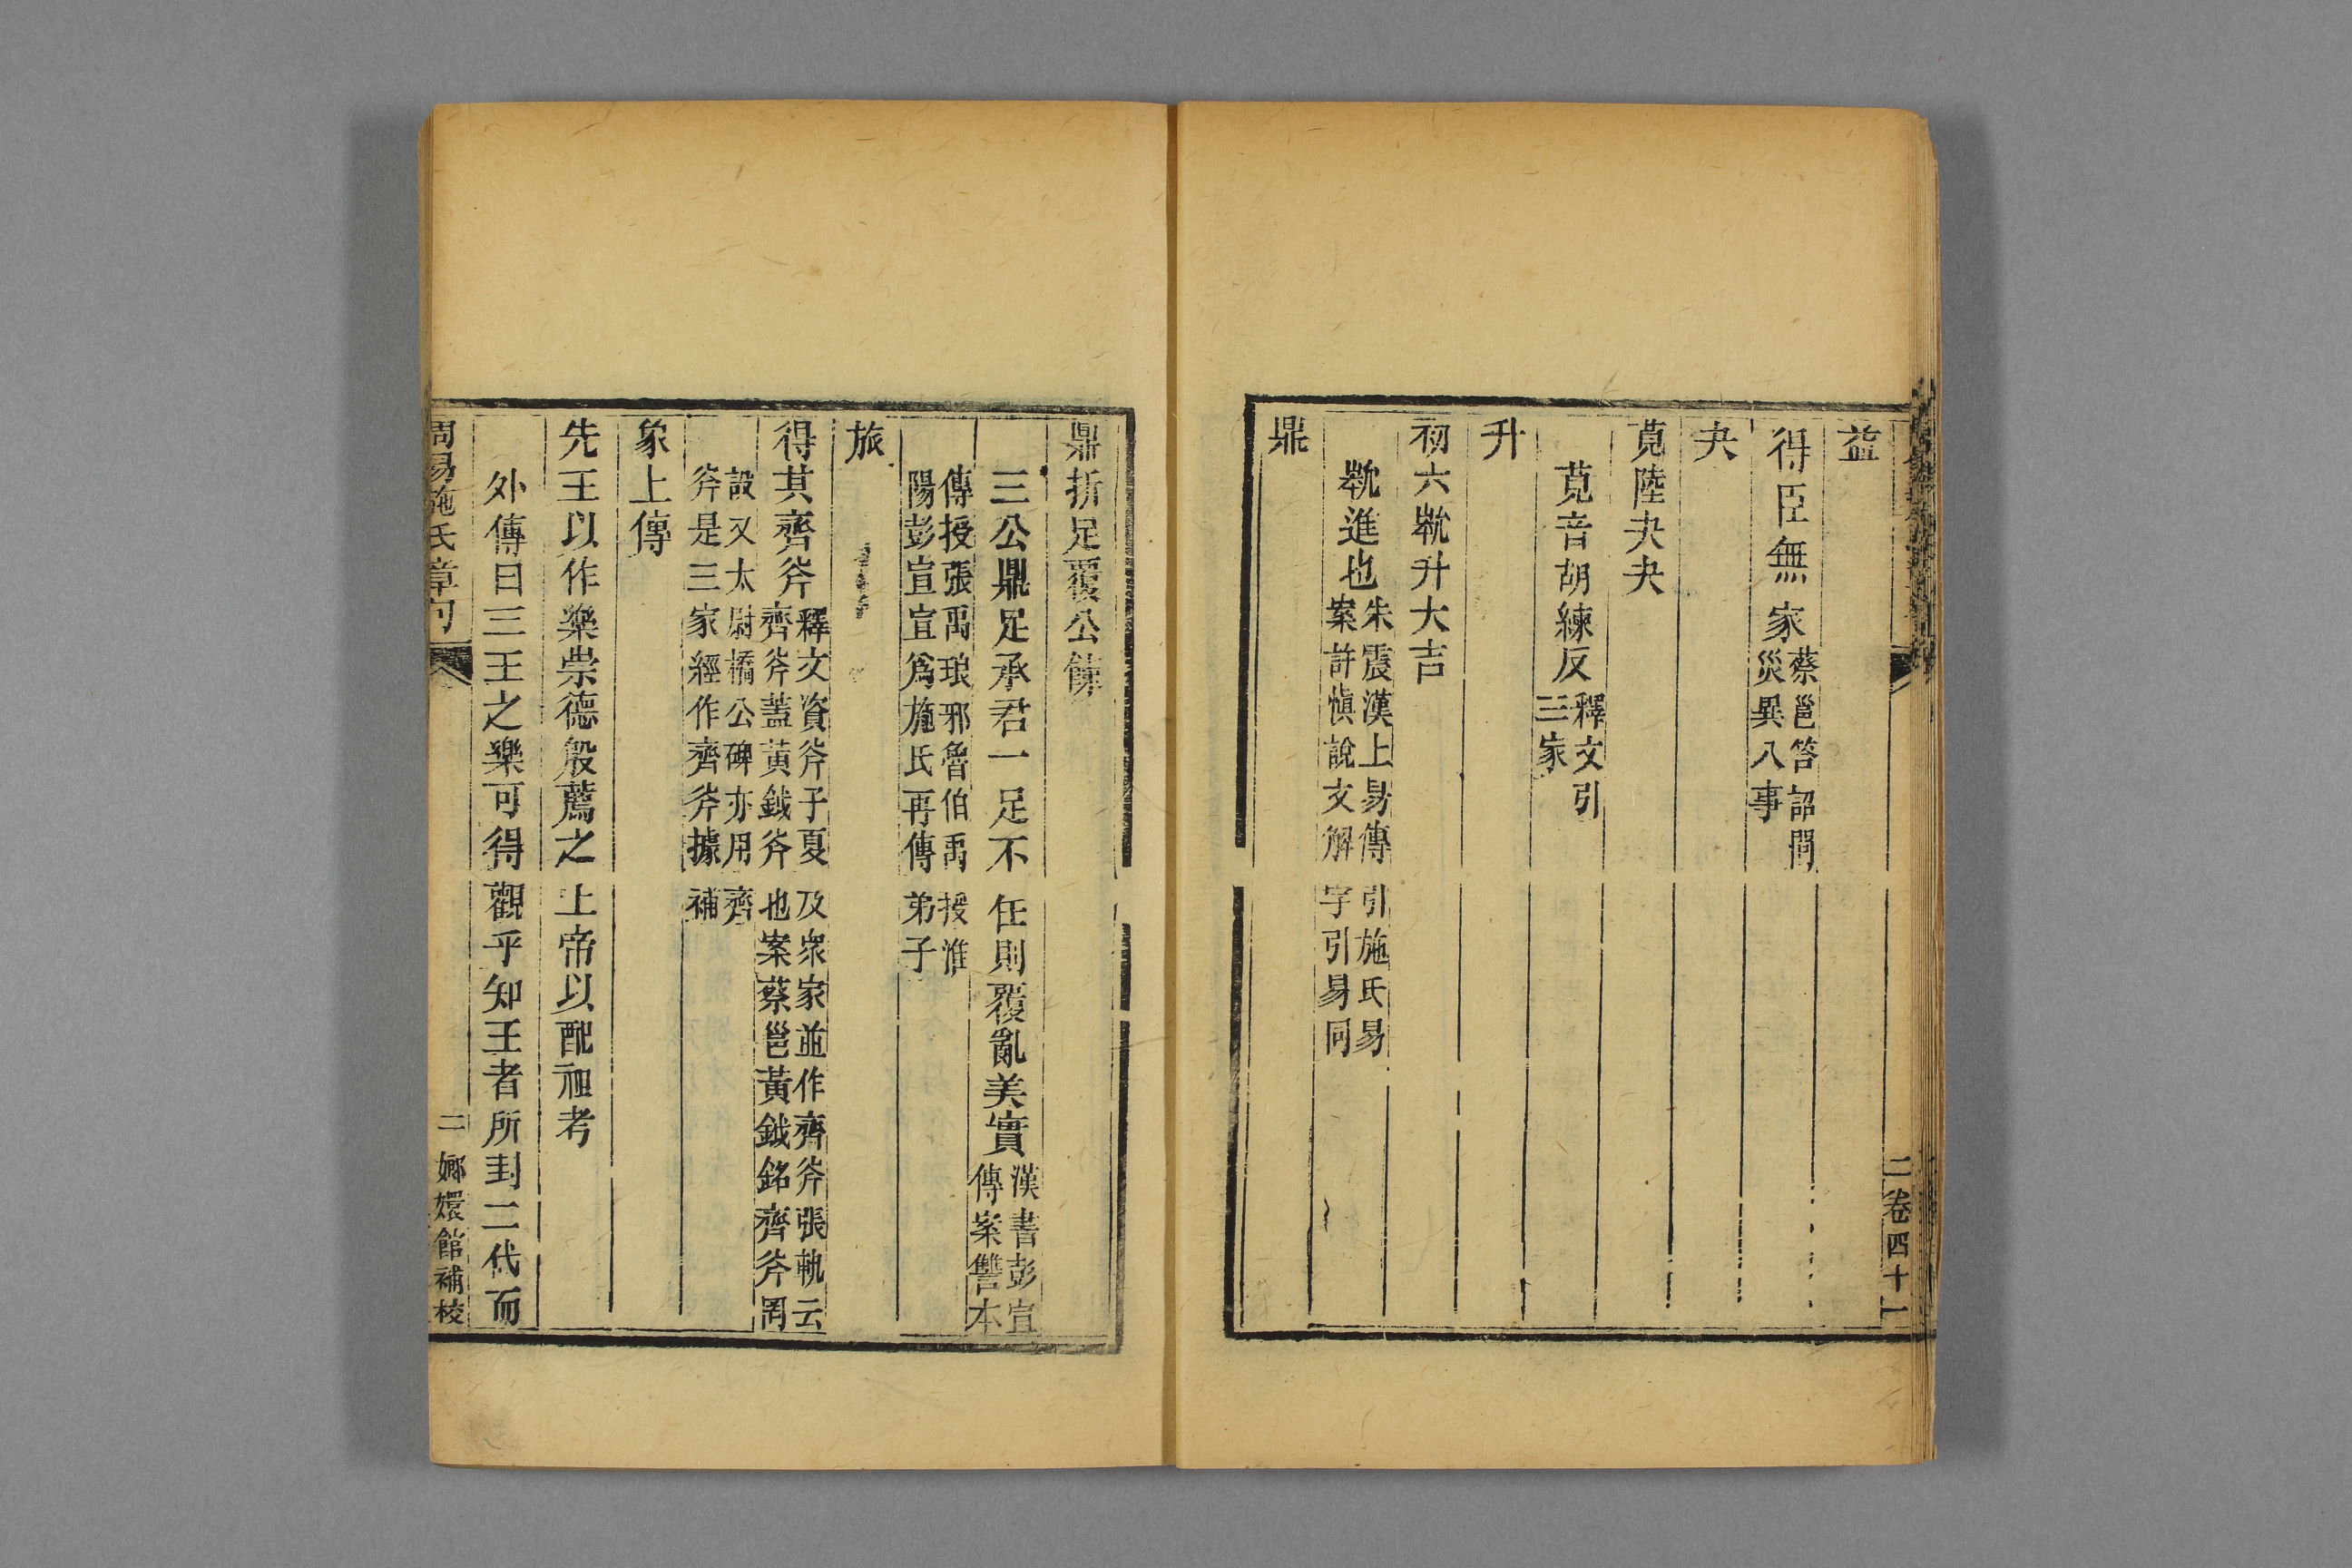 益
得臣無家蔡邕答詔問災異八事
夬
莧陸夬夬
莧音胡練反釋文引三家
升
初六㽙升大吉
㽙進也朱震漢上易傳引施氏易案許慎說文解字引易同
鼎
二卷四十一
鼎折足覆公餗
三公鼎足承君一足不任則覆亂美實漢書彭宣傳案讐本
傳授張禹琅邪魯伯禹授淮陽彭宣宣爲施氏再傳弟子
旅
得其齊斧釋文資斧子夏及衆家並作齊斧張軌云齊斧蓋黃鉞斧也案蔡邕黃鉞銘齊斧罔
設又太尉橋公碑亦用齊斧是三家經作齊斧據補
象上傳
先王以作樂崇德殷薦之上帝以配祖考
外傳曰三王之樂可得觀乎知王者所封二代而
周易施氏章句
二
嫏嬛館補校